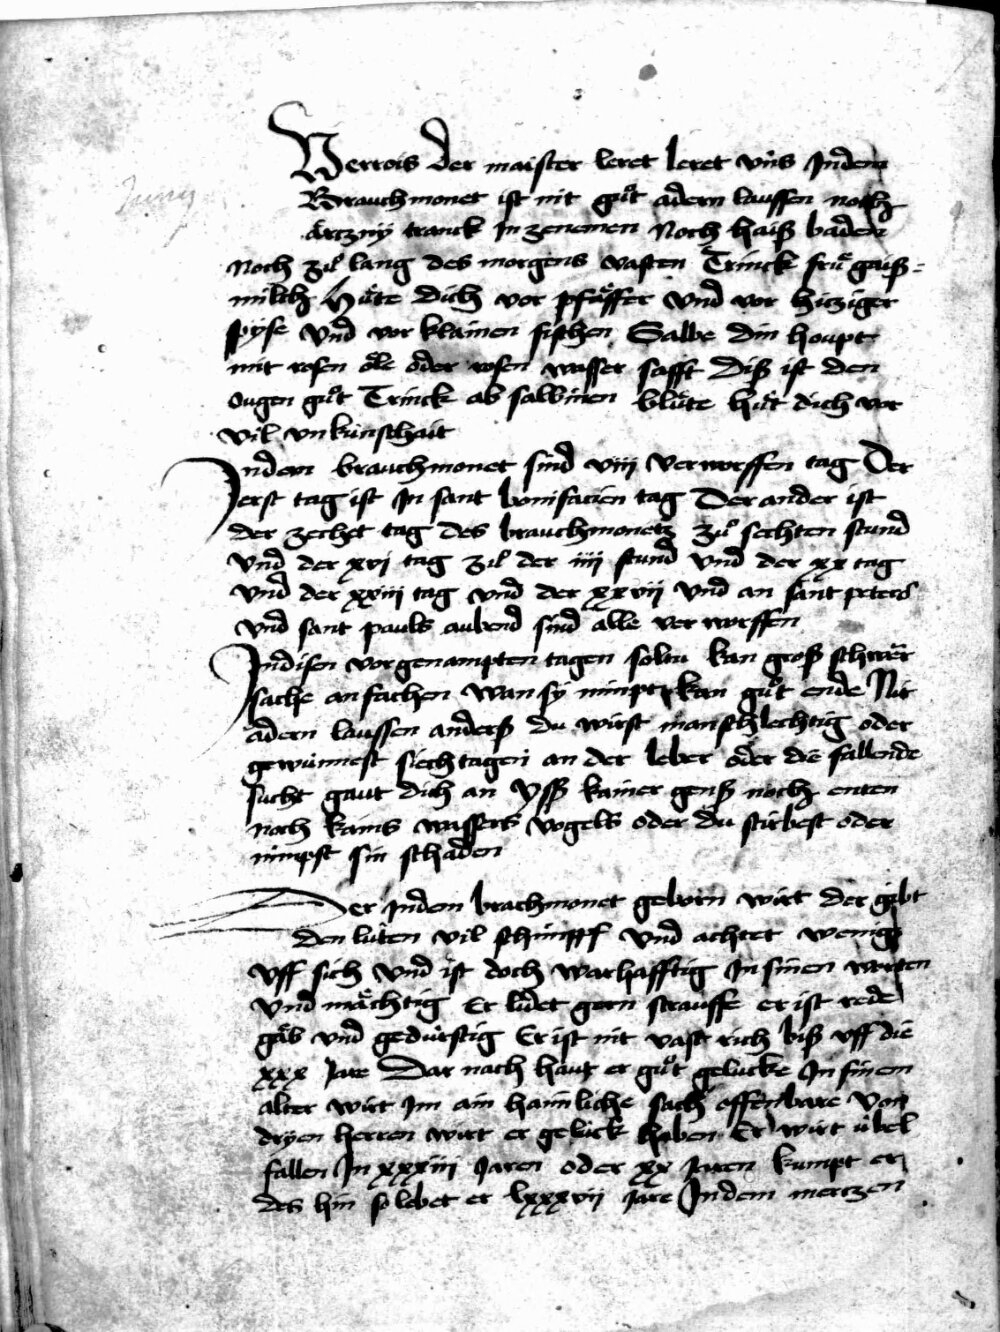 Verrois der maister leret leret vns Indem
Brauchmonet ist nit guͦt adern laussen noch
Juny
artzny tranck In zenemen Noch haiß baden
Noch zuͦ lang des morgens vasten Trinck fruͤ gaiß=
milch Huͤte dich vor pfaͤffer vnd vor hitziger
spyse vnd vor klainen fischen Salbe din houpt
mit rosen oͤle oder rosen wasser safft Diß ist den
ougen guͦt Trinck ab salbinen bluͤte huͤt dich vor
vil vnkünschait
Indem brauchmonet sind viii verworffen tag Der
erst tag ist In sant bonifacien tag Der ander ist
der zechet tag des brauchmonetz zuͦ sechten stund
vnd der xvi tag zuͦ der iiii stund vnd der xx tag
vnd der xxiii tag vnd der xxvii vnd an sant peters
vnd sant pauls aubend sind alle verworffen
In disen vorgenampten tagen soltu kan groß schwaͤr
sache anfachen wan sy nimpt kan guͦt ende Nit
adern laussen anderß du wirst manschlechtig oder
gewünnest siechtagen an der leber oder die fallende
sucht gaut dich an Yss kainer genß noch enten
noch kains wassers vogels oder du stirbest oder
nimpst sin schaden
Der Indem brachmonet geborn wirt der gibt
den luͤten vil schimpff vnd achtet wenig
vff sich vnd ist doch warhafftig In sinen worten
vnd maͤchtig Er luͤdet gern strauffe er ist rede
gaͤb vnd gedürstig Er ist nit vast rich biß vff die
xxx Jare Dar nach haut er guͦt gelucke In sinem
alter wirt Im ain haimliche sach offenbare Von
dryen herren wirt er gelück haben Er wirt übel
fallen In xxxiii Jaren oder xx Jaren kumpt er
des hin so lebet er lxxxvii Jare Indem mertzen